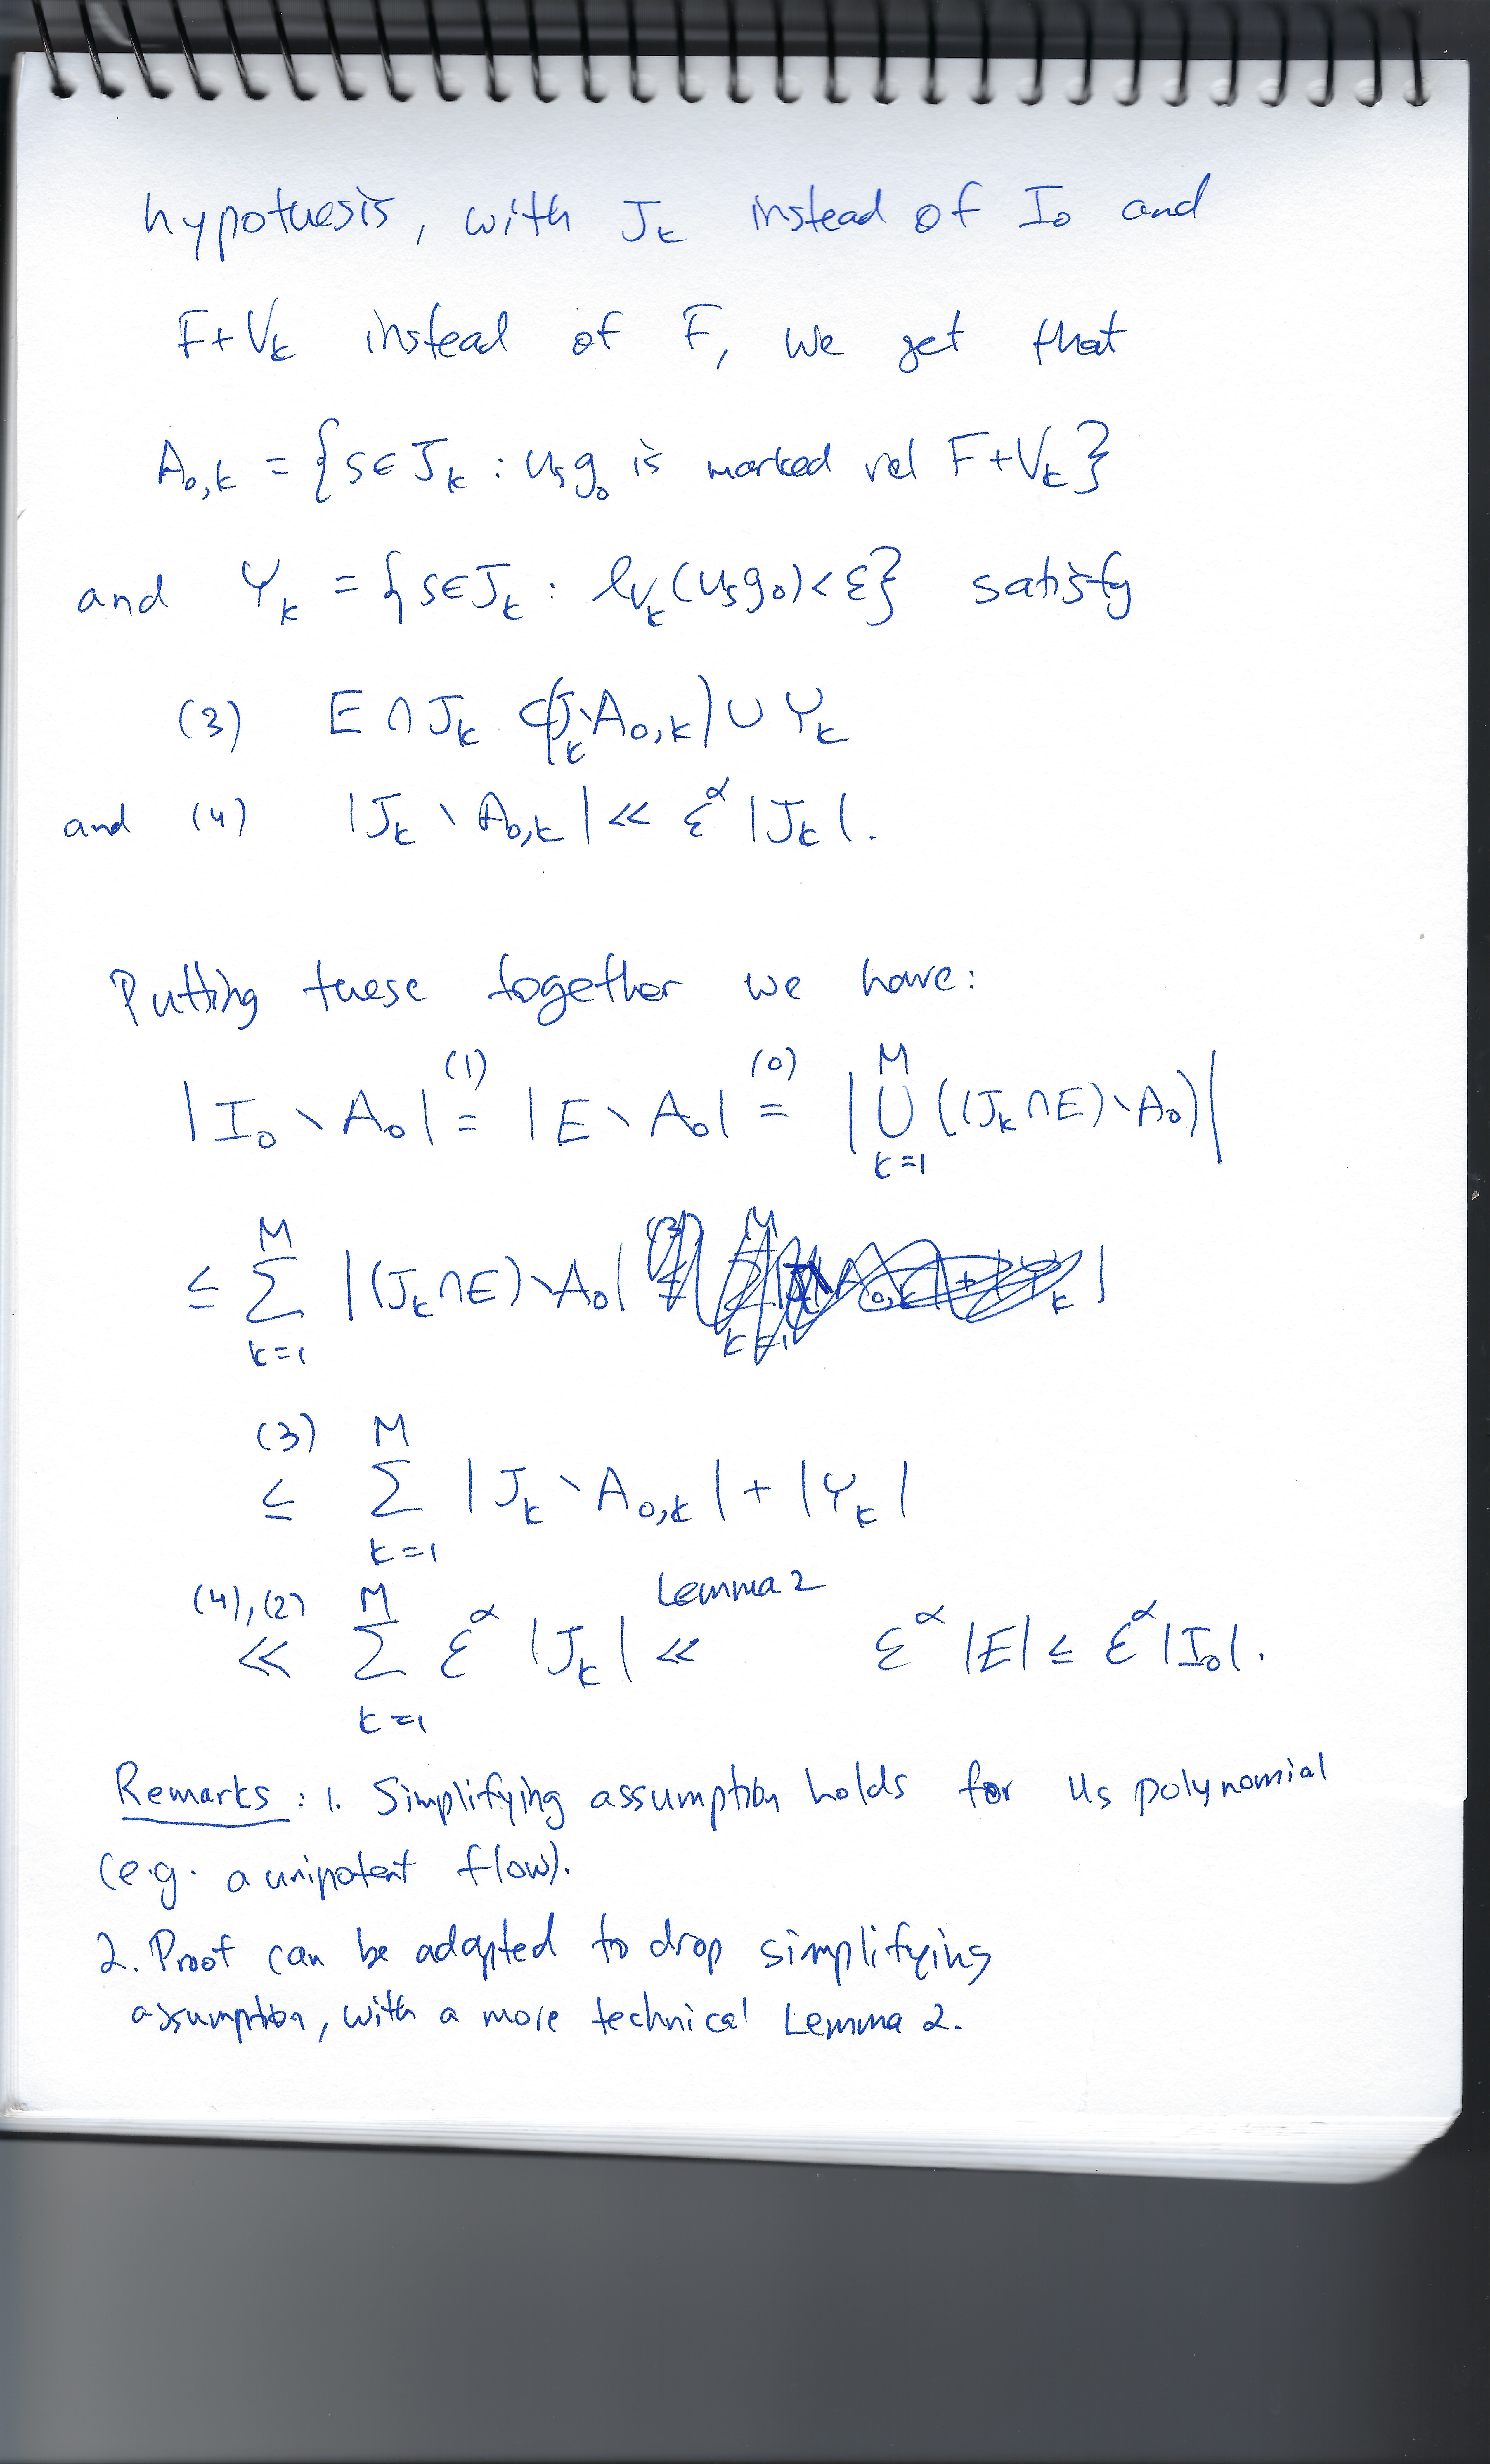 hypothesis, with J_k instead of I_0 and
F+V_k instead of F, we get that
A_{0,k} = {s∈J_k : u_s g_0 is marked rel F+V_k}
and Y_k = {s∈J_k : l_{V_k}(u_s g_0)<ε} satisfy
(3) E ∩ J_k ⊂ (J_k∖A_{0,k}) ∪ Y_k
and (4) |J_k ∖ A_{0,k}| ≪ ε^α |J_k|.
Putting these together we have:
|I_0 ∖ A_0| =^{(1)} |E ∖ A_0| =^{(0)} |⋃_{k=1}^{M} ((J_k ∩E)∖A_0)|
≤ Σ_{k=1}^{M} |(J_k ∩E)∖A_0|
≤^{(3)} Σ_{k=1}^{M} |J_k ∖ A_{0,k}| + |Y_k|
≪^{(4),(2)} Σ_{k=1}^{M} ε^α |J_k| ≪^{Lemma 2} ε^α |E| ≤ ε^α |I_0|.
Remarks: 1. Simplifying assumption holds for u_s polynomial
(e.g. a unipotent flow).
2. Proof can be adapted to drop simplifying
assumption, with a more technical Lemma 2.